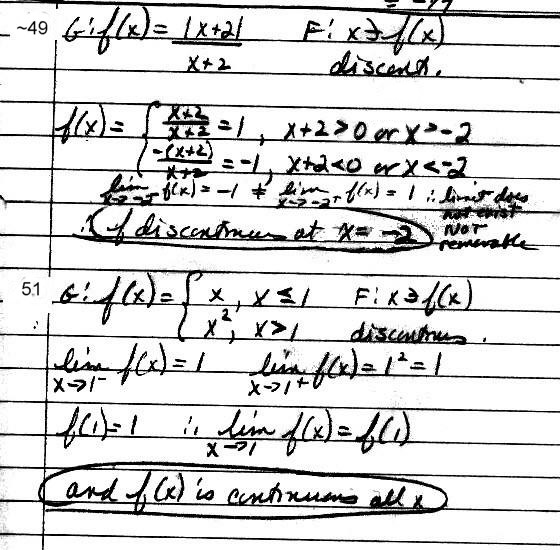 ~49 G: f(x) = |x+2| / x+2 F: x ∋ f(x) discont.
f(x) = { x+2 / x+2 = 1, x+2>0 or x>-2
-(x+2) / x+2 = -1, x+2<0 or x<-2
lim x→-2⁻ f(x) = -1 ≠ lim x→-2⁺ f(x) = 1 ∴ limit does not exist NOT removable
∴ f discontinuous at x = -2
51 G: f(x) = { x, x ≤ 1 F: x ∋ f(x)
x², x > 1 discontinuous.
lim x→1⁻ f(x) = 1 lim x→1⁺ f(x) = 1² = 1
f(1) = 1 ∴ lim x→1 f(x) = f(1)
and f(x) is continuous all x